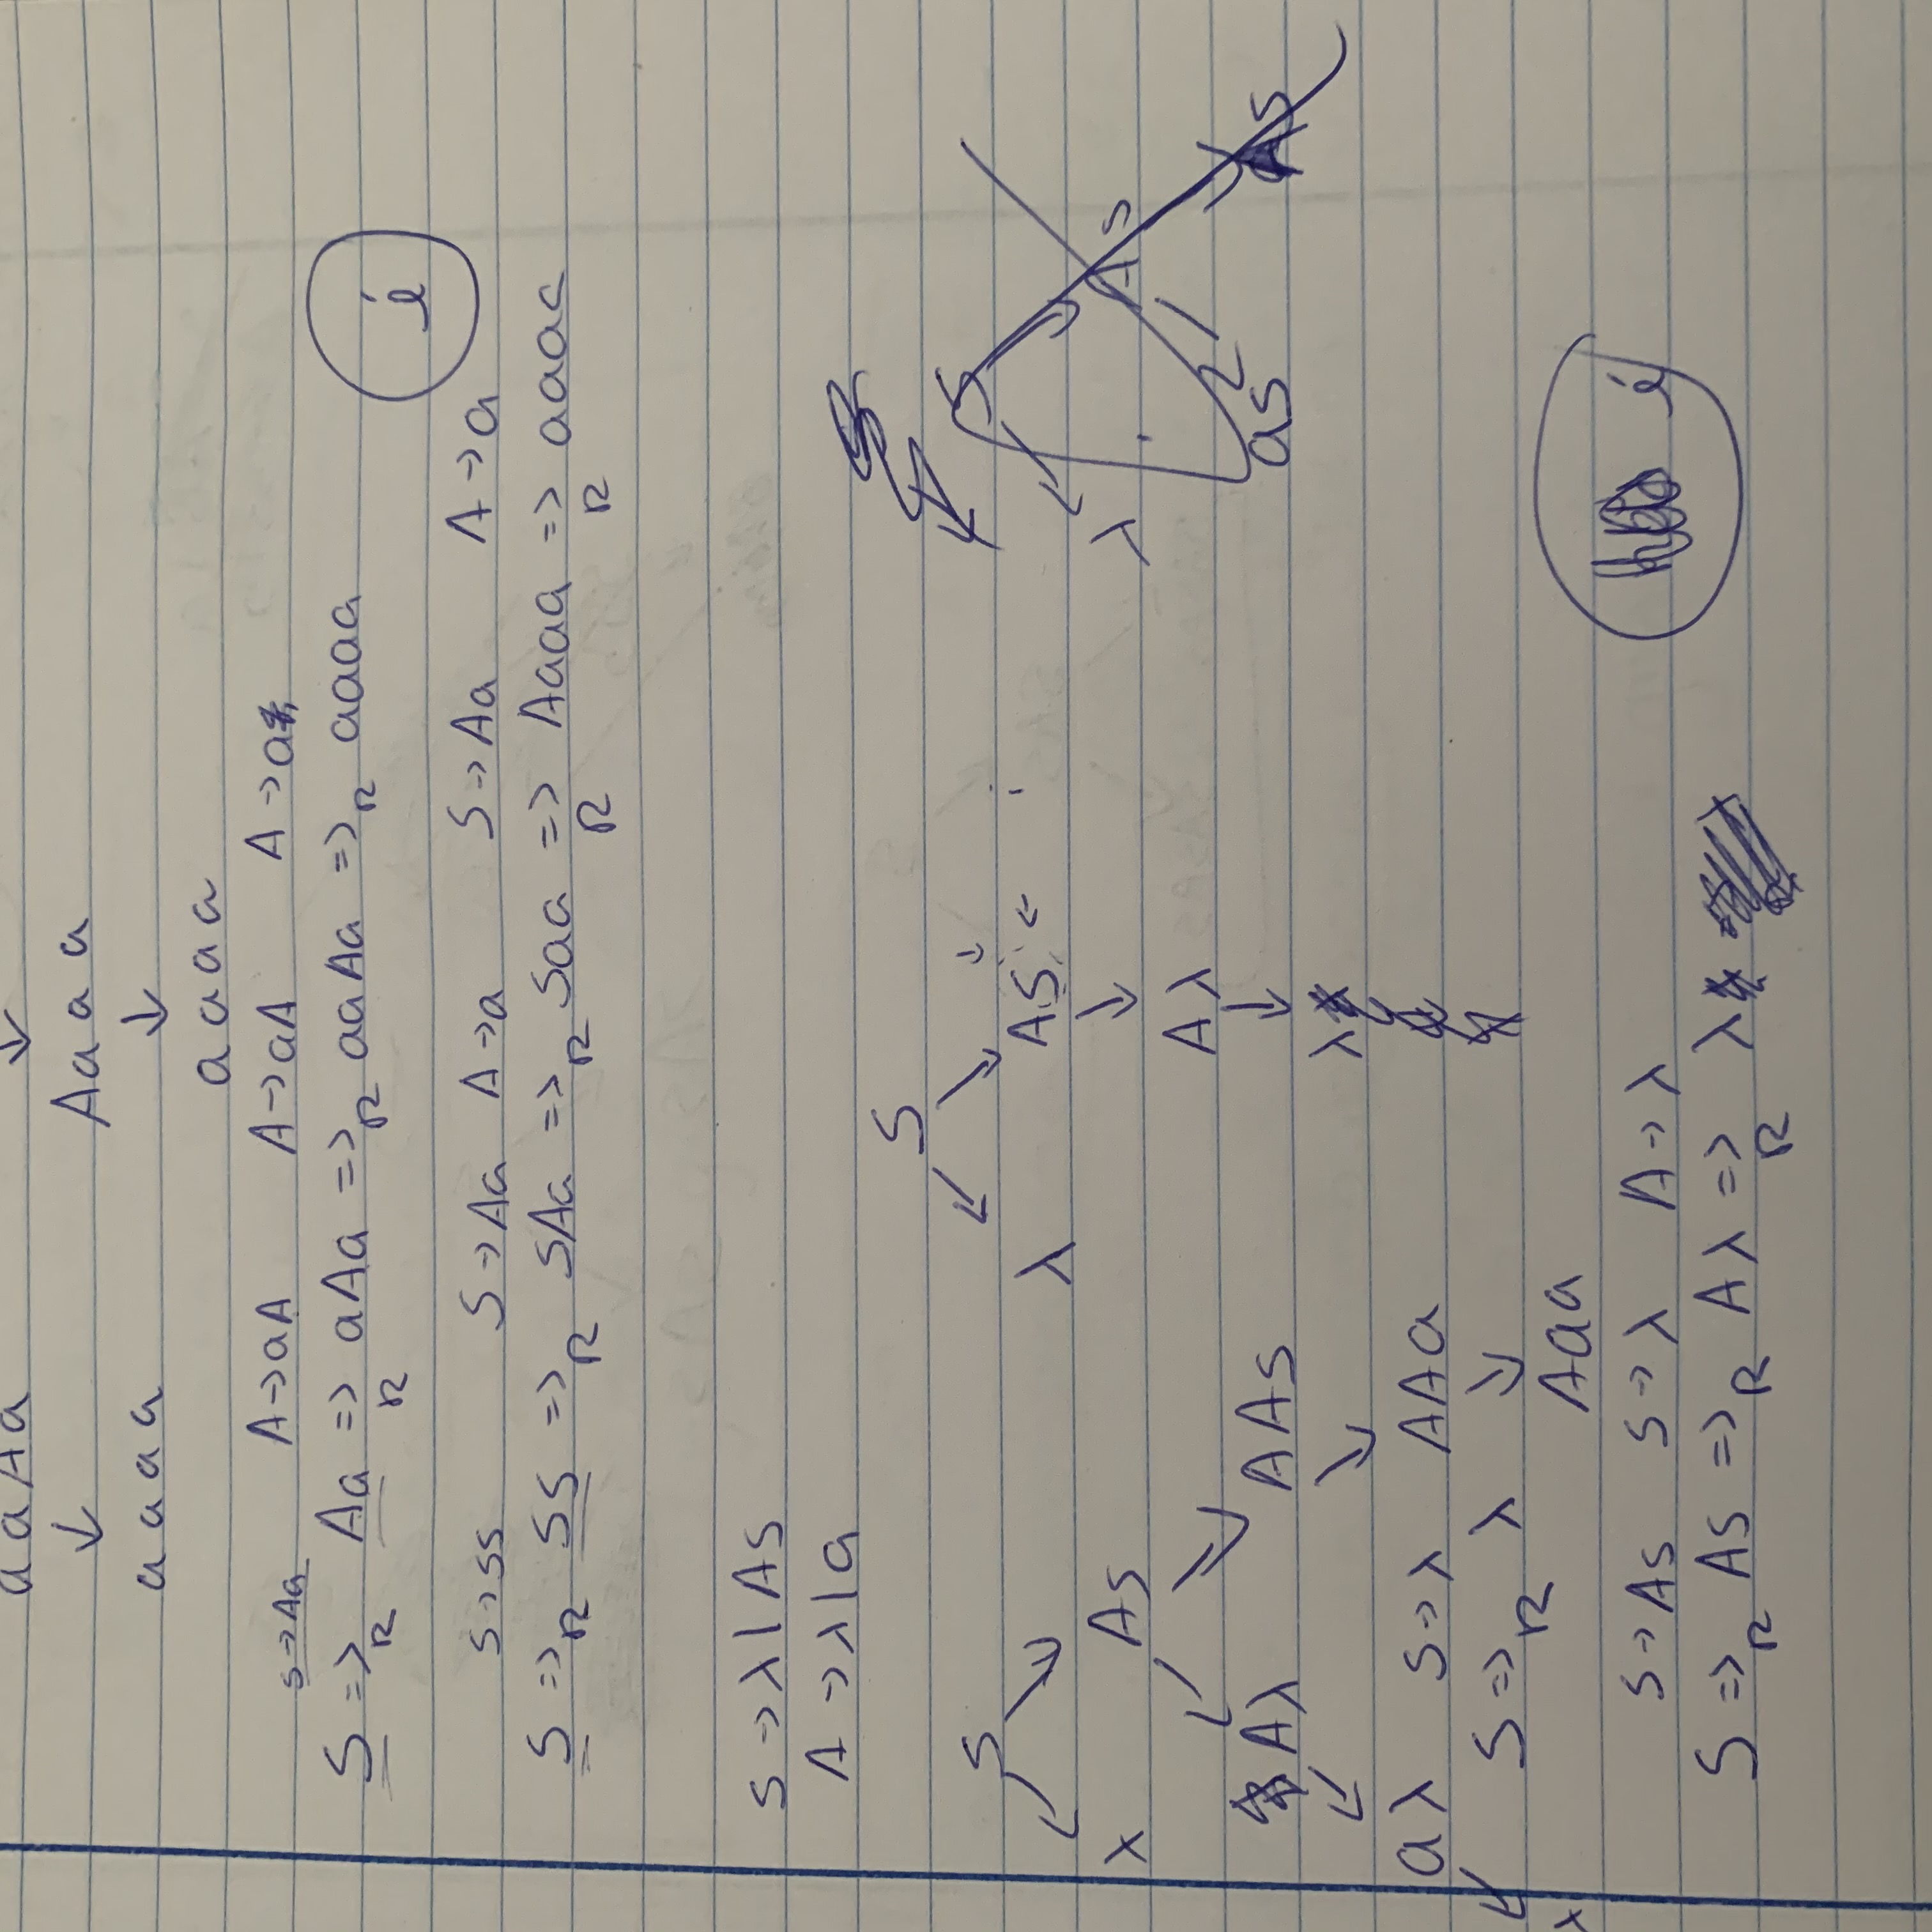 aaAa ↓
↓ Aa a a
a a a a ↓
a a a a
S→Aa A→aA A→aA A→a
S =>R Aa =>R aAa =>R aaAa =>R aaaa
i
S→SS S→Aa A→a S→Aa A→a
S =>R SS =>R SAa =>R Saa =>R Aaaa =>R aaaa
S→λ|AS
A→λ|a
S
S S
λ AS
λ AS λ AS
Aλ
Aλ AAS aS AS
λ
aλ S→λ AAa
S =>R λ
λ Aaa
S→AS S→λ A→λ i
S =>R AS =>R Aλ =>R λ